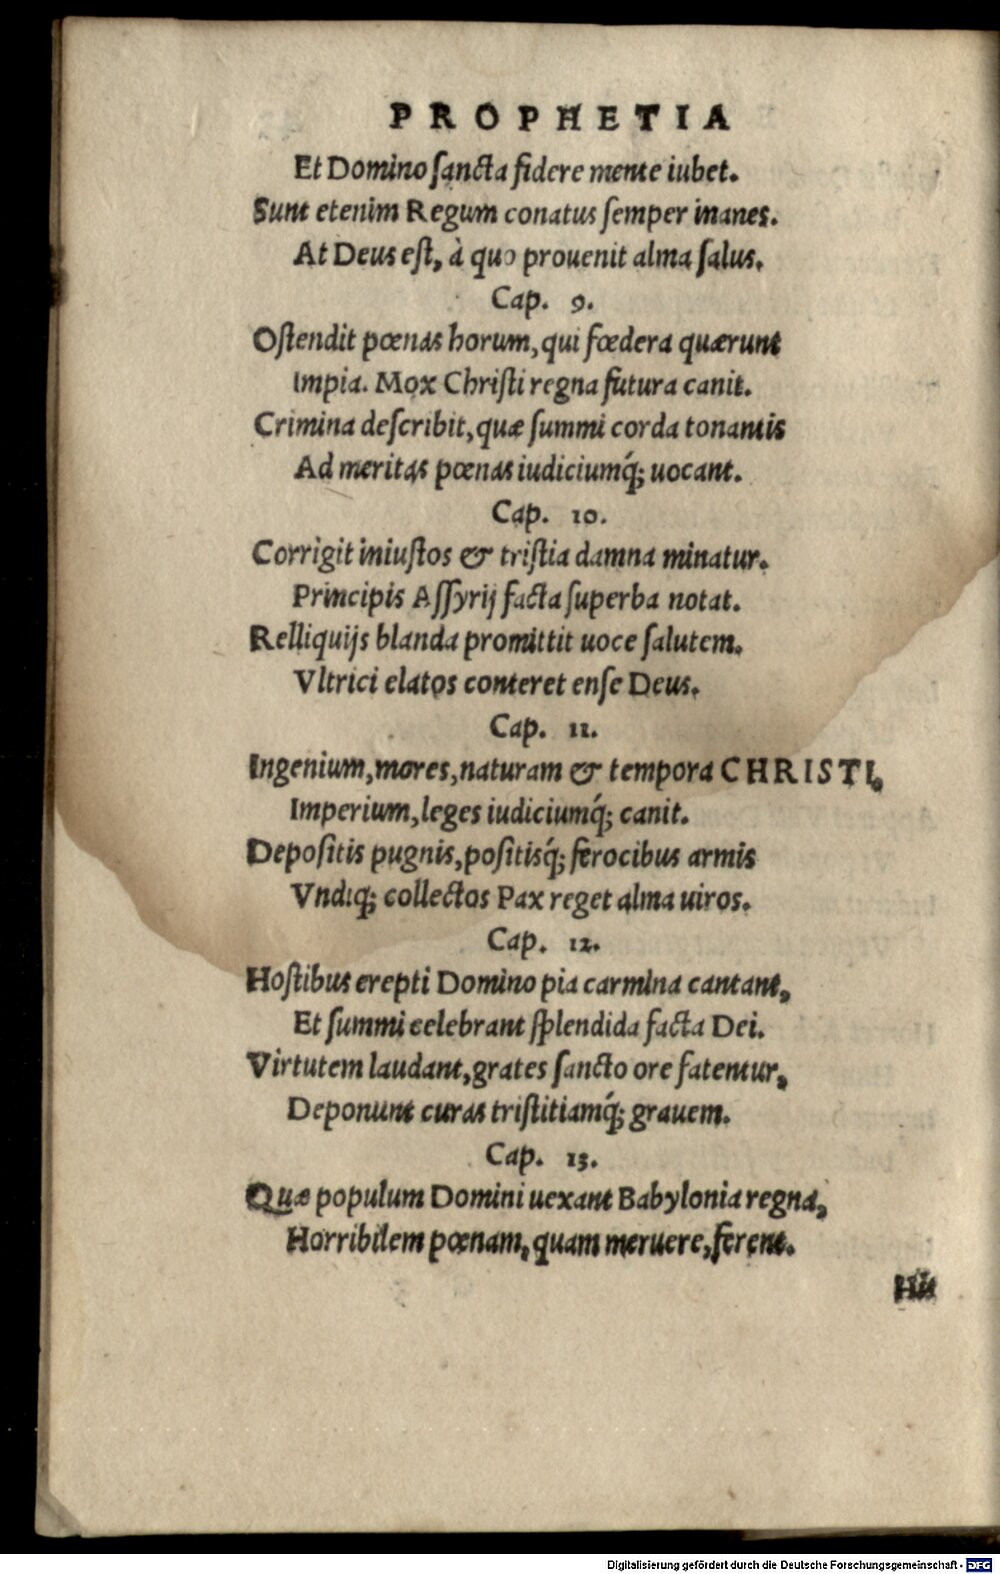 PROPHETIA
Et Domino ſancta fidere mente iubet.
Sunt etenim Regum conatus ſemper inanes.
At Deus eſt, à quo prouenit alma ſalus.
Cap. 9.
Oſtendit pœnas horum, qui fœdera quærunt
Impia. Mox Chriſti regna futura canit.
Crimina deſcribit, quæ ſummi corda tonantis
Ad meritas pœnas iudiciumq́; uocant.
Cap. 10.
Corrigit iniuſtos & triſtia damna minatur.
Principis Aſſyrij facta ſuperba notat.
Relliquijs blanda promittit uoce ſalutem.
Vltrici elatos conteret enſe Deus.
Cap. 11.
Ingenium, mores, naturam & tempora CHRISTI,
Imperium, leges iudiciumq́; canit.
Depoſitis pugnis, poſitisq́; ferocibus armis
Vndiq; collectos Pax reget alma uiros.
Cap. 12.
Hoſtibus erepti Domino pia carmina cantant,
Et ſummi celebrant ſplendida facta Dei.
Virtutem laudant, grates ſancto ore fatentur,
Deponunt curas triſtitiamq́; grauem.
Cap. 13.
Quæ populum Domini uexant Babylonia regna,
Horribilem pœnam, quam meruere, ferent.
His
Digitalisierung gefördert durch die Deutsche Forschungsgemeinschaft - DFG